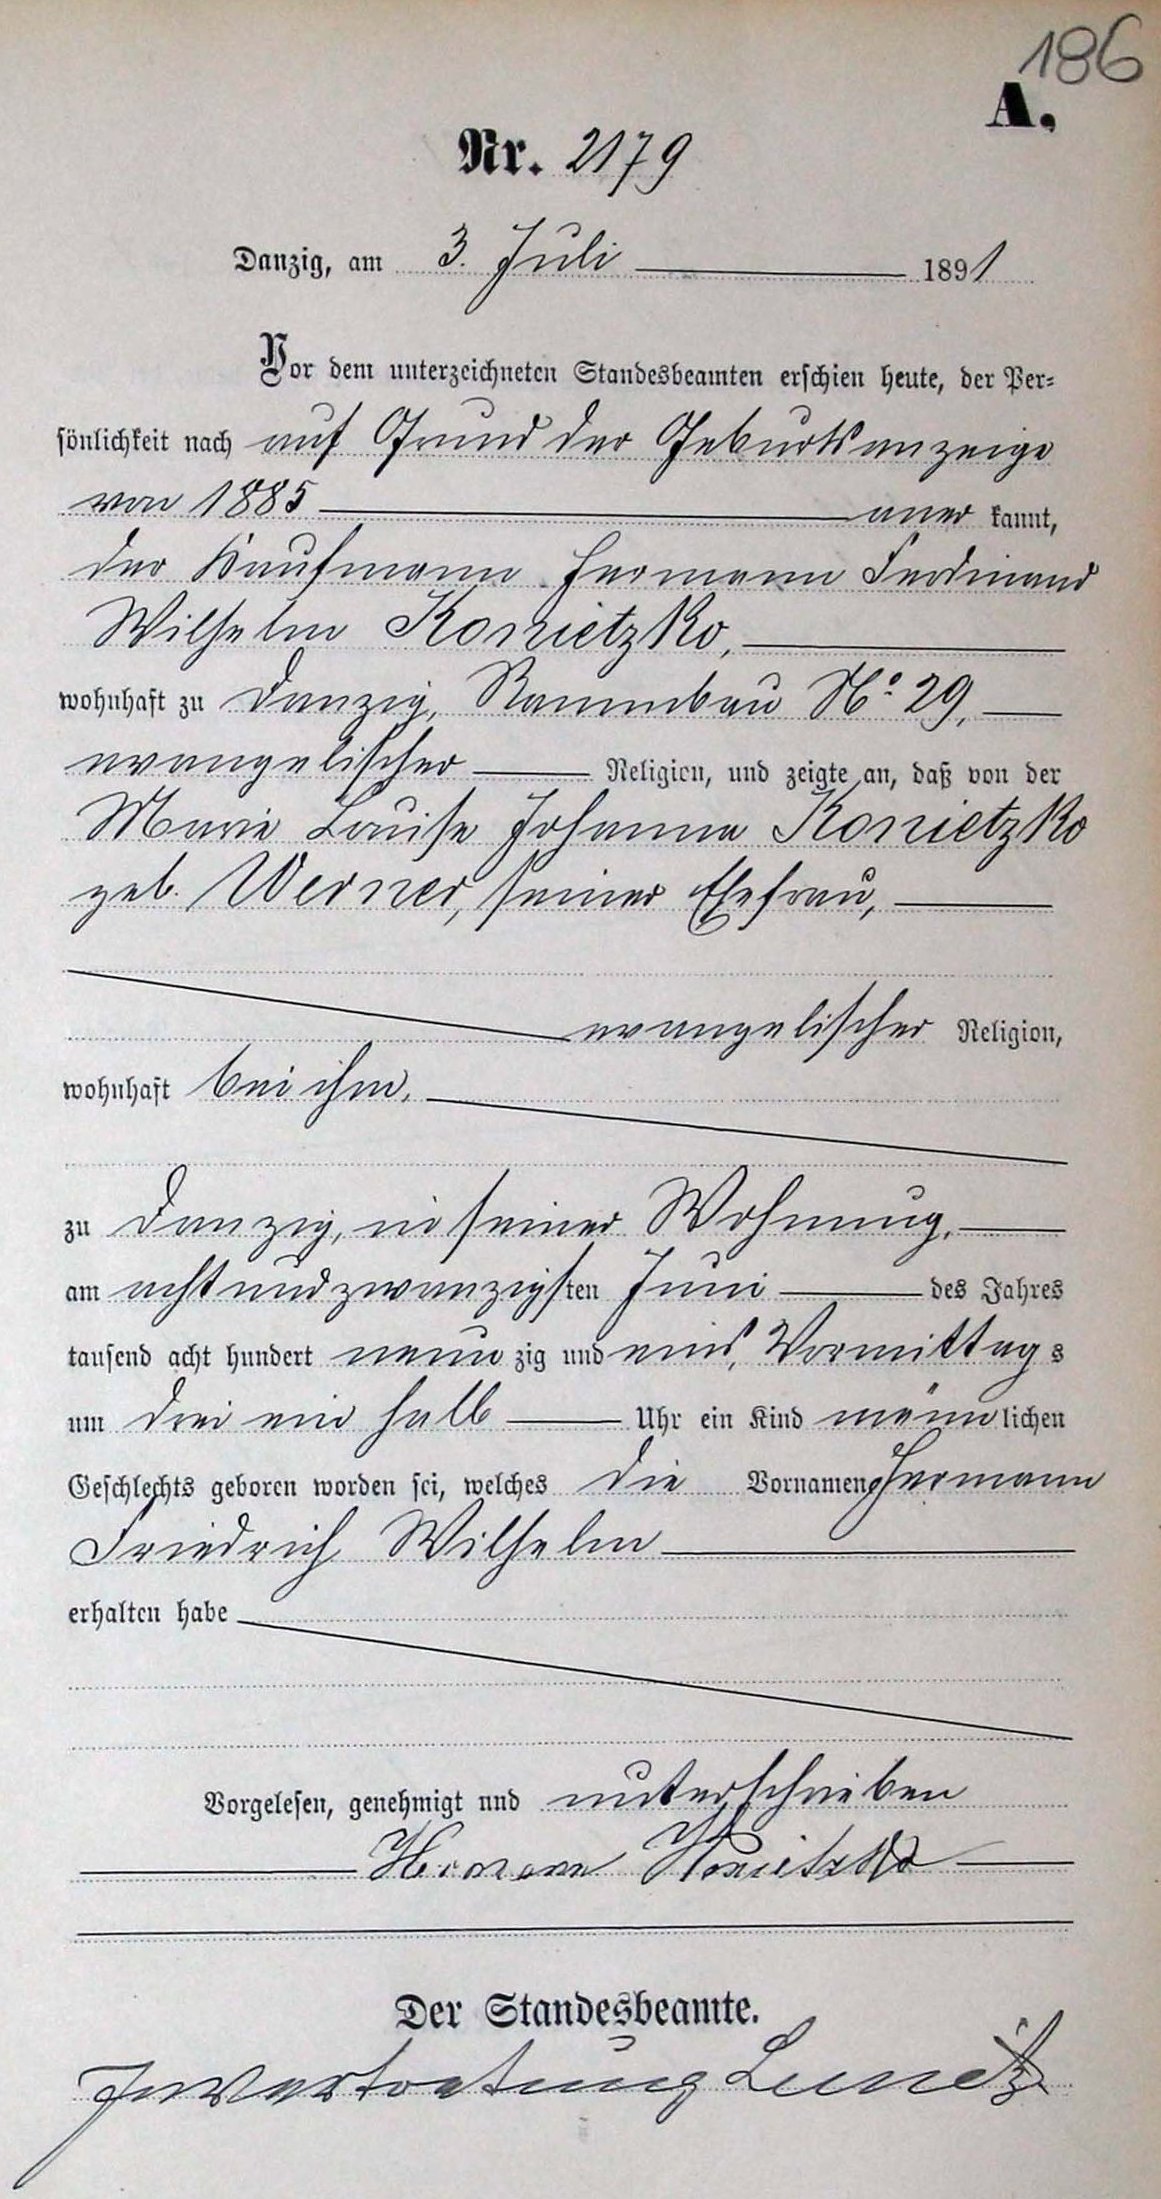 186
A.
Nr. 2179
Danzig, am 3. Juli 1891
Vor dem unterzeichneten Standesbeamten erschien heute, der Per-
sönlichkeit nach auf Grund der Geburtsanzeige
von 1885 aner kannt,
der Kaufmann Hermann Ferdinand
Wilhelm Konietzko,
wohnhaft zu Danzig, Rammbau No. 29,
evangelischer Religion, und zeigte an, daß von der
Marie Louise Johanna Konietzko
geb. Werner, seiner Ehefrau,
evangelischer Religion,
wohnhaft bei ihm,
zu Danzig, in seiner Wohnung,
am achtundzwanzigsten Juni des Jahres
tausend acht hundert neunzig und eins, Vormittags
um drei ein halb Uhr ein Kind männlichen
Geschlechts geboren worden sei, welches die Vornamen Hermann
Friedrich Wilhelm
erhalten habe
Vorgelesen, genehmigt und unterschrieben
Hermann Konietzko
Der Standesbeamte.
In Vertretung